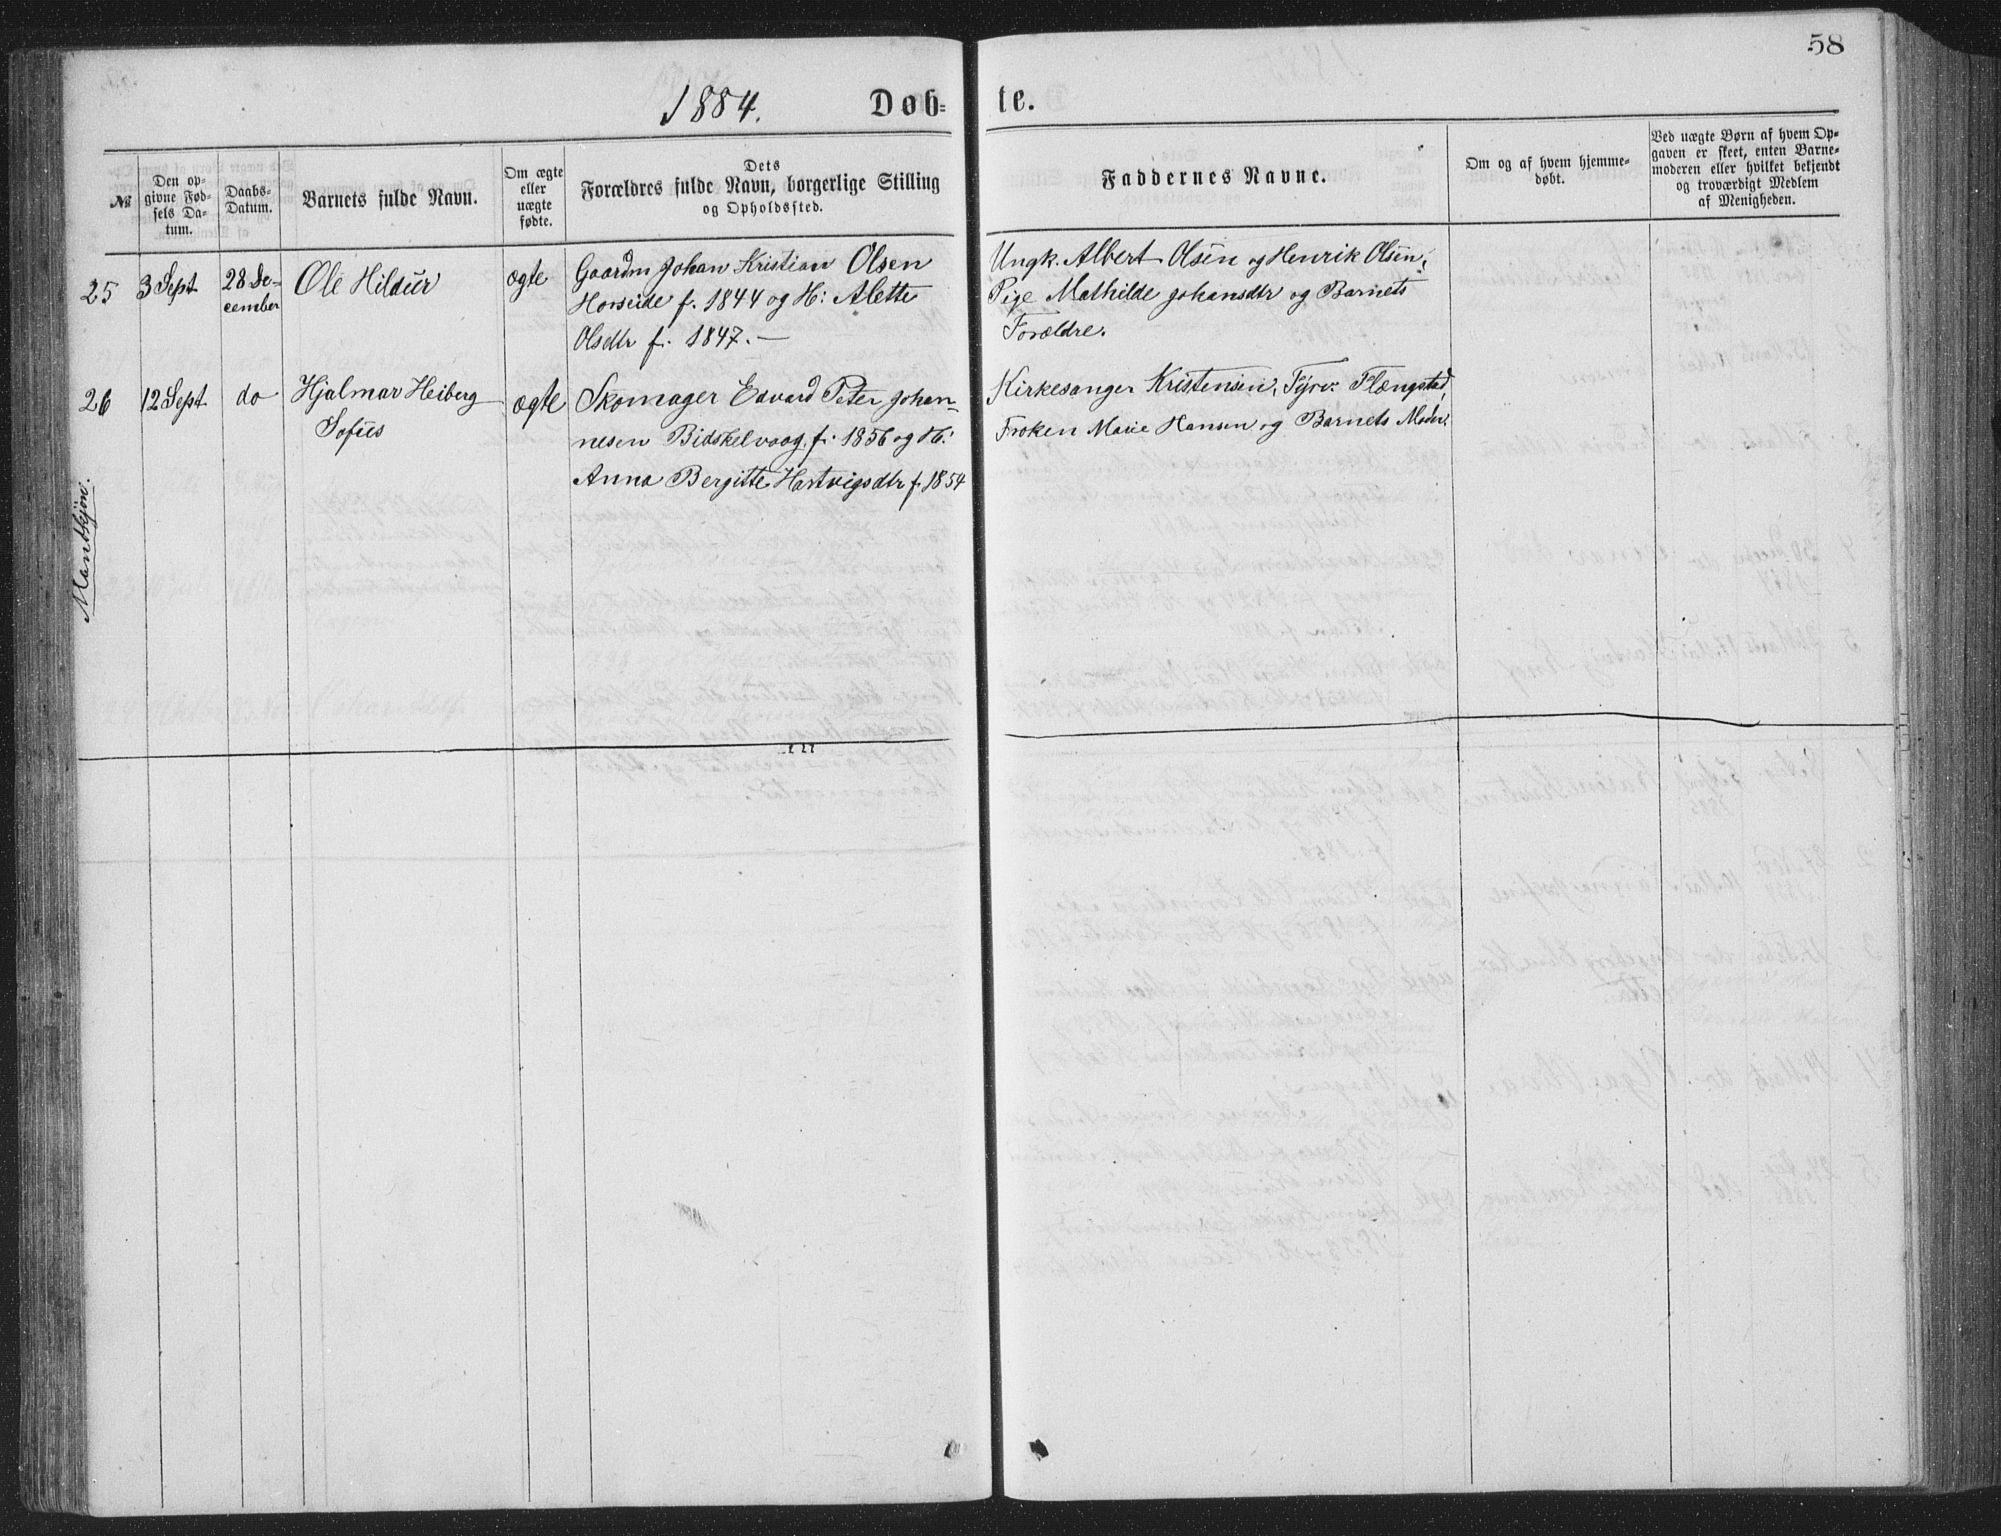 58
1884. Døb-te.
№
Den opgivne Fødsels Datum.
Daabs-Datum.
Barnets fulde Navn.
Om ægte eller uægte fødte.
Dets Forældres fulde Navn, borgerlige Stilling og Opholdssted.
Faddernes Navne.
Om og af hvem hjemmedøbt.
Ved uægte Børn af hvem Opgaven er skeet, enten Barnemoderen eller hvilket bekjendt og troværdigt Medlem af Menigheden.
25 3 Sept 28 De-
cember
Ole Hildur
ægte
Gaardm Johan Kristian Olsen
Horseide f. 1844 og H: Alette
Olsdtr f. 1847. —
Ungk. Albert Olsen og Henrik Olsen,
Pige Mathilde Johansdtr og Barnets
Forældre.
26 12 Sept do
Hjalmar Heiberg
Sofus
ægte
Skomager Edvard Peter Johan-
nesen Bidskelvaag f. 1856 og H:
Anna Bergitte Hartvigsdtr f. 1854
Kirkesanger Kristensen, Fyrv. Flængstad,
Frøken Marie Hansen og Barnets Moder.
Mantkjøn.